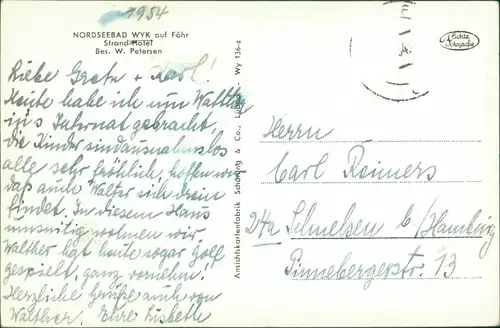 1954
NORDSEEBAD WYK auf Föhr
Strand-Hotel
Bes. W. Petersen
Liebe Greta + Karl!
Heute habe ich nun Walther
ins Internat gebracht,
die Kinder sind ausnahmslos
alle sehr fröhlich, hoffen wir
daß auch Walter sich drein
findet. In diesem Haus
wohnen wir
Walther hat heute sogar Golf
gespielt, ganz vornehm!
Herzliche Grüße auch von
Walther. Eure Lisbeth
Ansichtskartenfabrik Schöning & Co., Lübeck - Wy 136-z
Echte
Fotografie
Herrn
Carl Reimers
24a Schnelsen b/Hamburg
Pinnebergerstr. 13